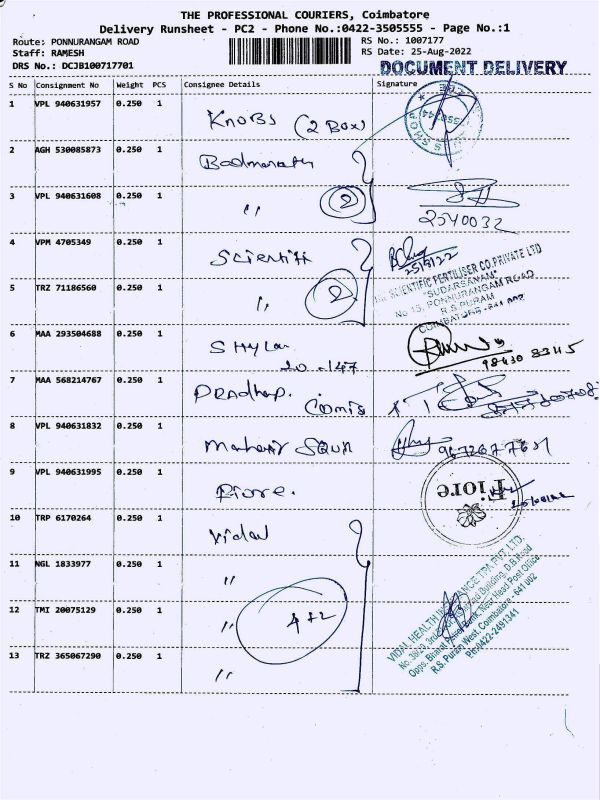 THE PROFESSIONAL COURIERS, Coimbatore
Delivery Runsheet - PC2 - Phone No.:0422-3505555 - Page No.:1
Route: PONNURANGAM ROAD
RS No.: 1007177
Staff: RAMESH
RS Date: 25-Aug-2022
DRS No.: DCJB100717701
DOCUMENT DELIVERY
S No Consignment No Weight PCS Consignee Details Signature
1 VPL 940631957 0.250 1 KNOBS (2 Box)
2 AGH 530085873 0.250 1
3 VPL 940631608 0.250 1 〃 2
2540032
4 VPM 4705349 0.250 1 Scientifi
25/8/22
SCIENTIFIC FERTILISER CO.PRIVATE LTD
"SUDARSANAM"
No 15, PONNURANGAM ROAD
R.S PURAM
COIMBATORE - 641 002
5 TRZ 71186560 0.250 1 〃 2
6 MAA 293504688 0.250 1 SHYLA
20 -147
98430 83115
7 MAA 568214767 0.250 1 PRADhap. Coomis
8 VPL 940631832 0.250 1 Mahavir SQUR
9 VPL 940631995 0.250 1 Fiore.
Fiore
10 TRP 6170264 0.250 1 Vidal
11 NGL 1833977 0.250 1 〃
12 TMI 20075129 0.250 1 〃 4+2
13 TRZ 365067290 0.250 1 〃
VIDAL HEALTH INSURANCE TPA PVT. LTD.
Building, D.B.Road
Opps. Bharat Bank, Near Head Post Office
R.S. Puram West, Coimbatore - 641 002
Ph:0422-2491341